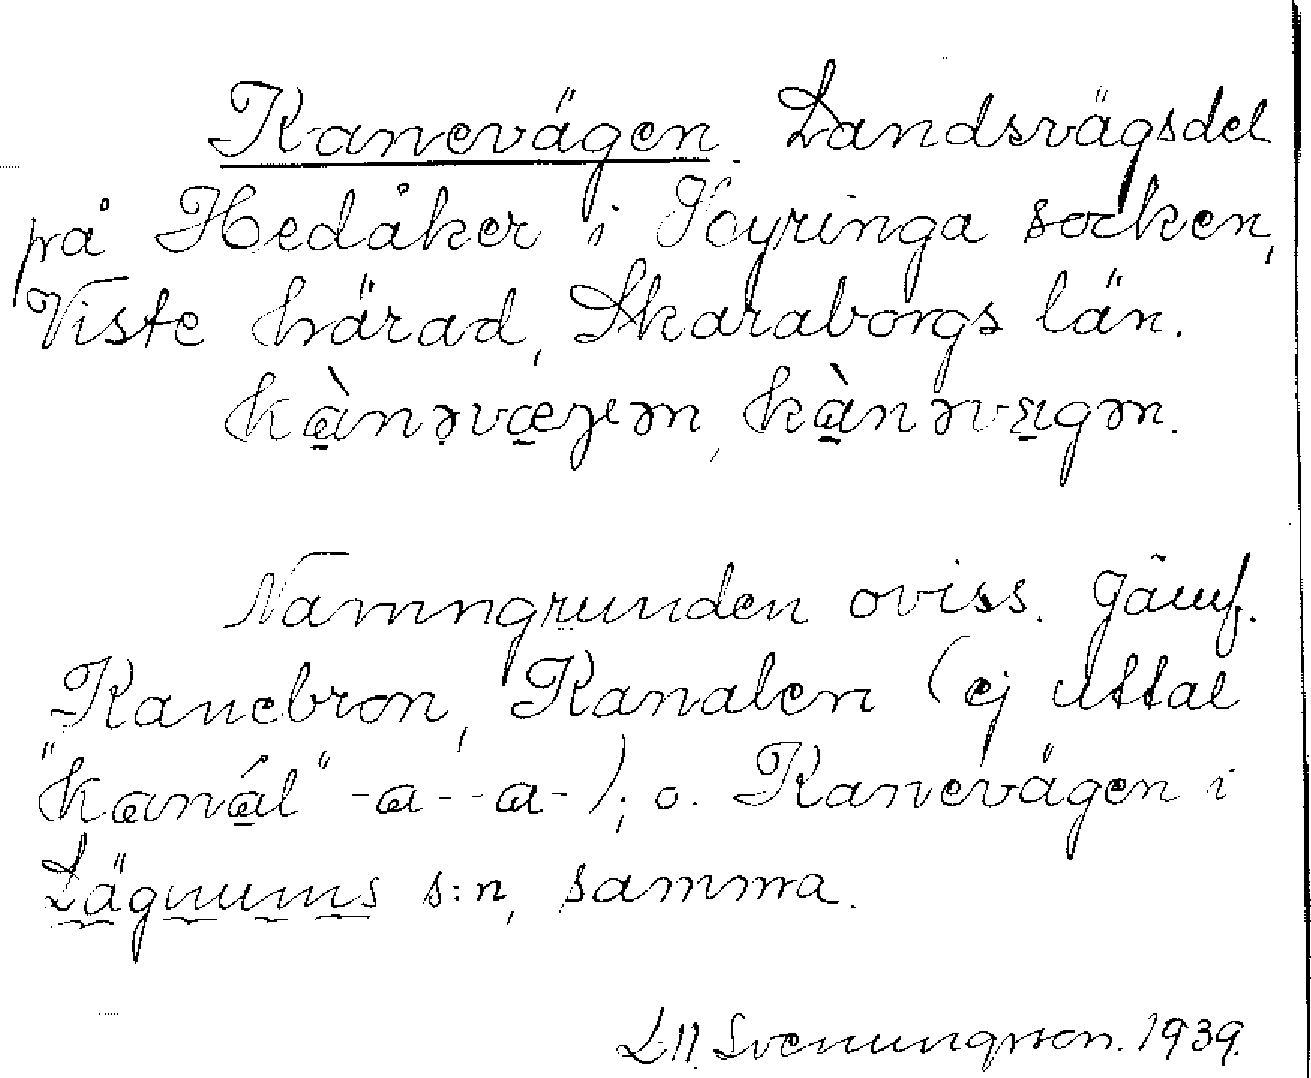 Kanevägen. Landsvägsdel
på Hedåker i Kyringa socken,
Viste härad, Skaraborgs län.
kànəvægen, kànəvægən.
Namngrunden oviss. Jämf.
Kanebron, Kanalen (ej uttal
"kanál" -a--a-); o. Kanevägen i
Längnums s:n, samma.
L.M. Svenungsson. 1939.